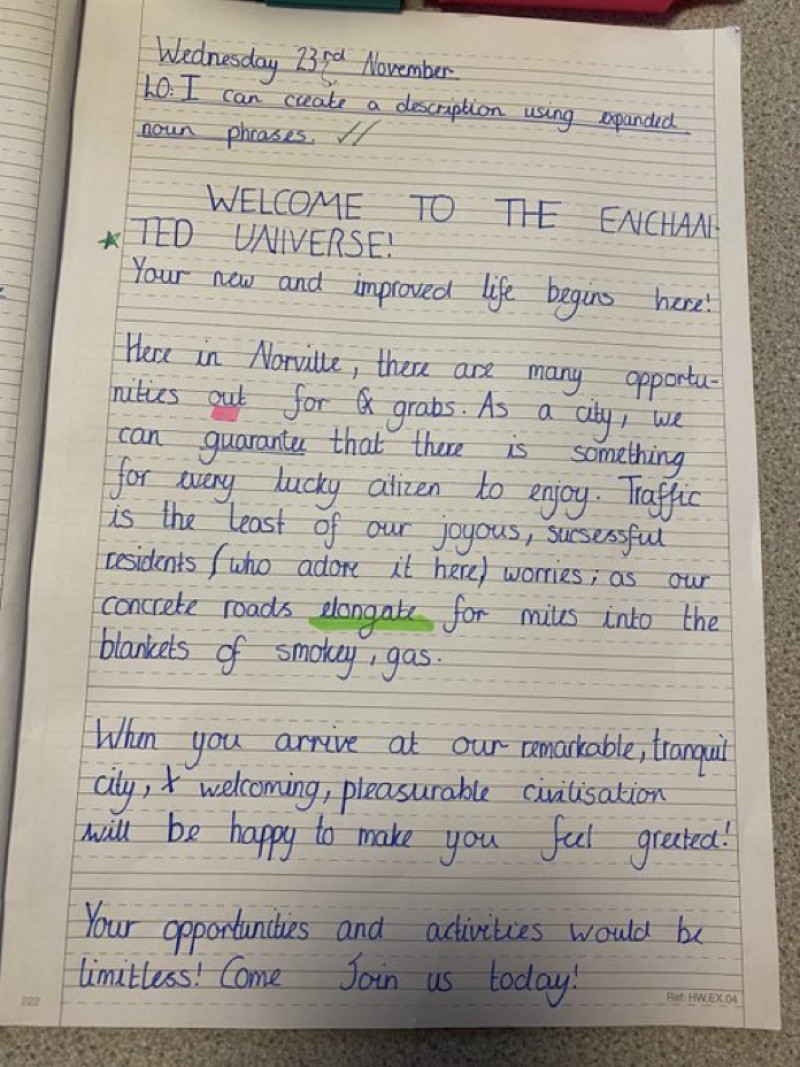 Wednesday 23rd November
LO: I can create a description using expanded
noun phrases.
WELCOME TO THE ENCHAN-
TED UNIVERSE!
Your new and improved life begins here!
Here in Norville, there are many opportu-
nities out for grabs. As a city, we
can guarantee that there is something
for every lucky citizen to enjoy. Traffic
is the least of our joyous, sucsessful
residents (who adore it here) worries; as our
concrete roads elongate for miles into the
blankets of smokey, gas.
When you arrive at our remarkable, tranquil
city, welcoming, pleasurable civilisation
will be happy to make you feel greeted!
Your opportunities and activities would be
limitless! Come Join us today!
222
Ref: HW.EX.04